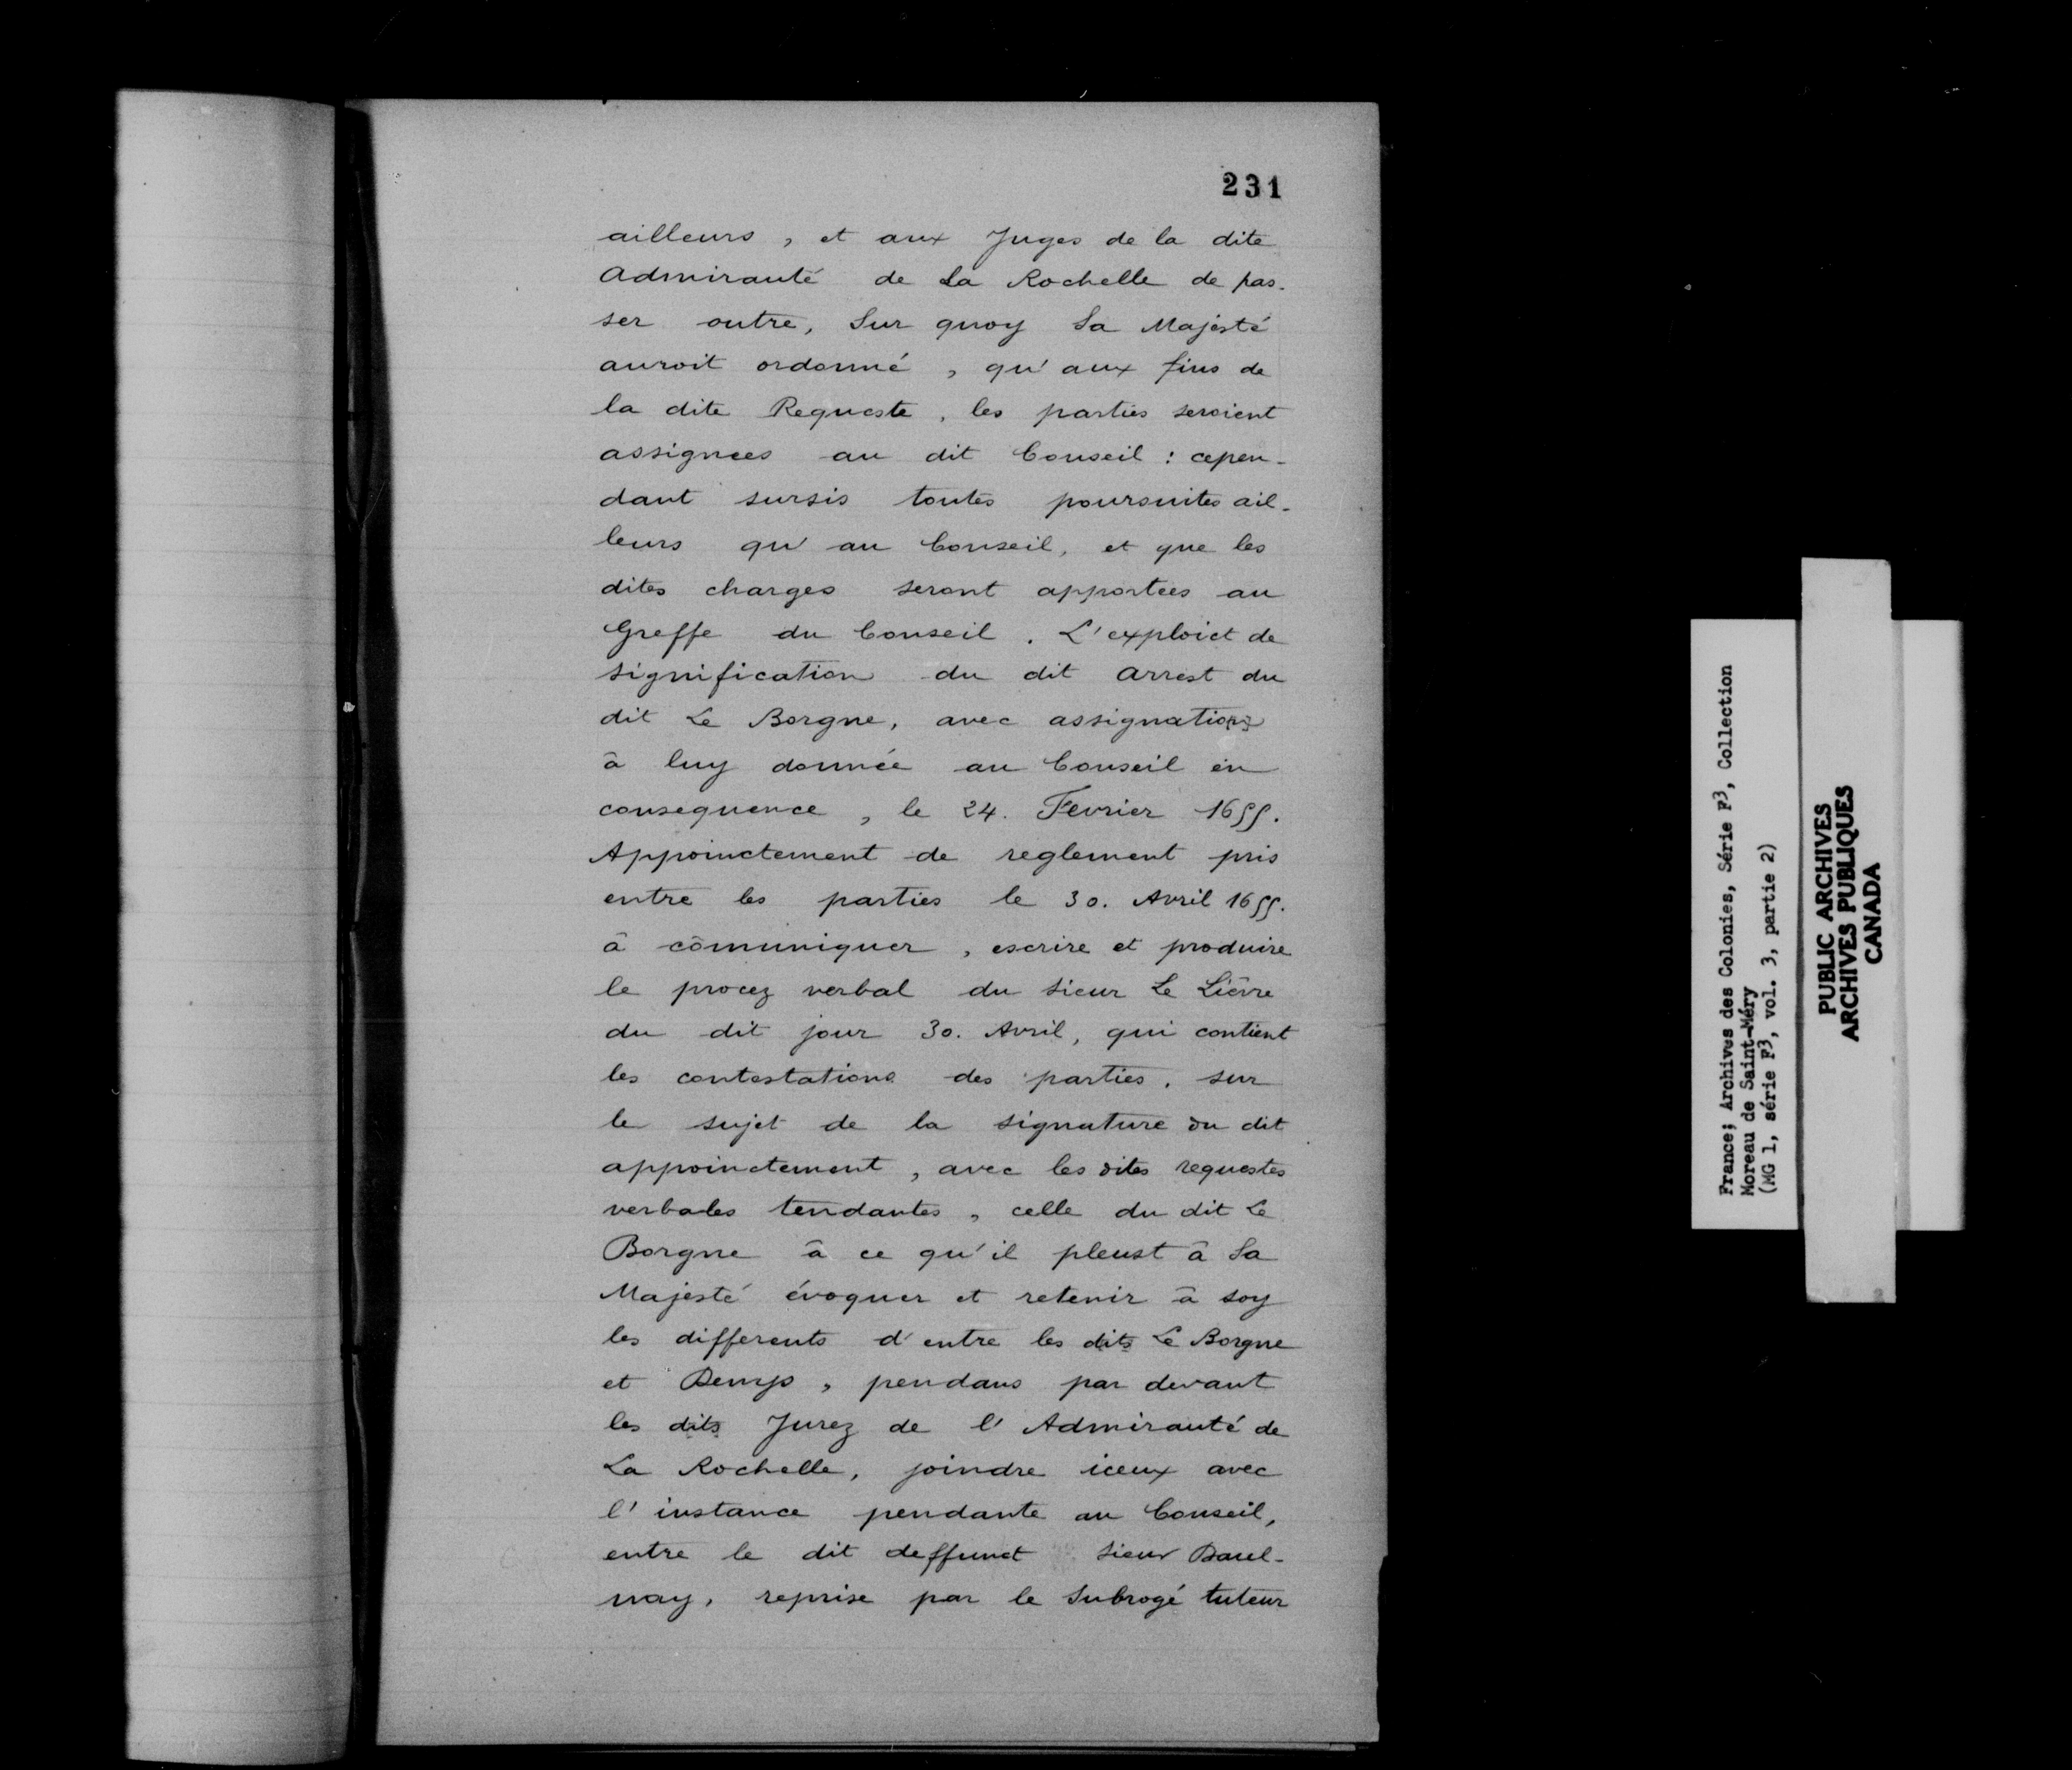 231
ailleurs, et aux Juges de la dite
Admirauté de La Rochelle de pas-
ser outre, Sur quoy Sa Majesté
auroit ordonné, qu'aux fins de
la dite Requeste, les parties seroient
assignees au dit Conseil : cepen-
dant sursis toutes poursuites ail-
leurs qu'au Conseil, et que les
dites charges seront apportees au
Greffe du Conseil. L'exploict de
signification du dit Arrest du
dit Le Borgne, avec assignation
à luy donnée au Conseil en
consequence, le 24. Fevrier 1655.
Appoinctement de reglement pris
entre les parties le 30. Avril 1655.
à cõmuniquer, escrire et produire
le procez verbal du sieur Le Lièvre
du dit jour 30. Avril, qui contient
les contestations des parties, sur
le sujet de la signature du dit
appoinctement, avec les dites requestes
verbales tendantes, celle du dit Le
Borgne à ce qu'il pleust à Sa
Majesté évoquer et retenir à soy
les differents d'entre les dits Le Borgne
et Denys, pendans par devant
les dits Jurez de l'Admirauté de
La Rochelle, joindre iceux avec
l'instance pendante au Conseil,
entre le dit deffunct sieur Daul-
nay, reprise par le Subrogé tuteur
France; Archives des Colonies, Série F3, Collection
Moreau de Saint-Méry
(MG 1, série F3, vol. 3, partie 2)
PUBLIC ARCHIVES
ARCHIVES PUBLIQUES
CANADA